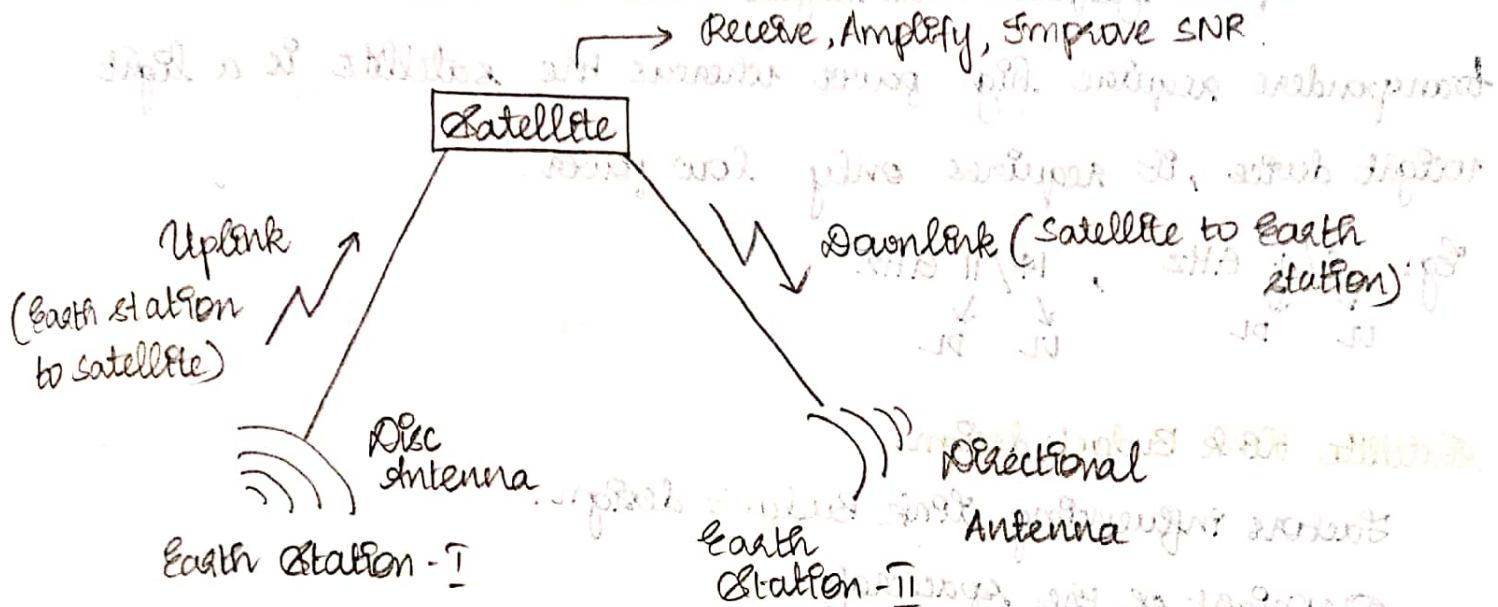 Receive, Amplify, Improve SNR.
Satellite
Uplink
(Earth station
to satellite)
Downlink (Satellite to Earth
station)
Disc
Antenna
Directional
Antenna
Earth Station - I
Earth
Station - II